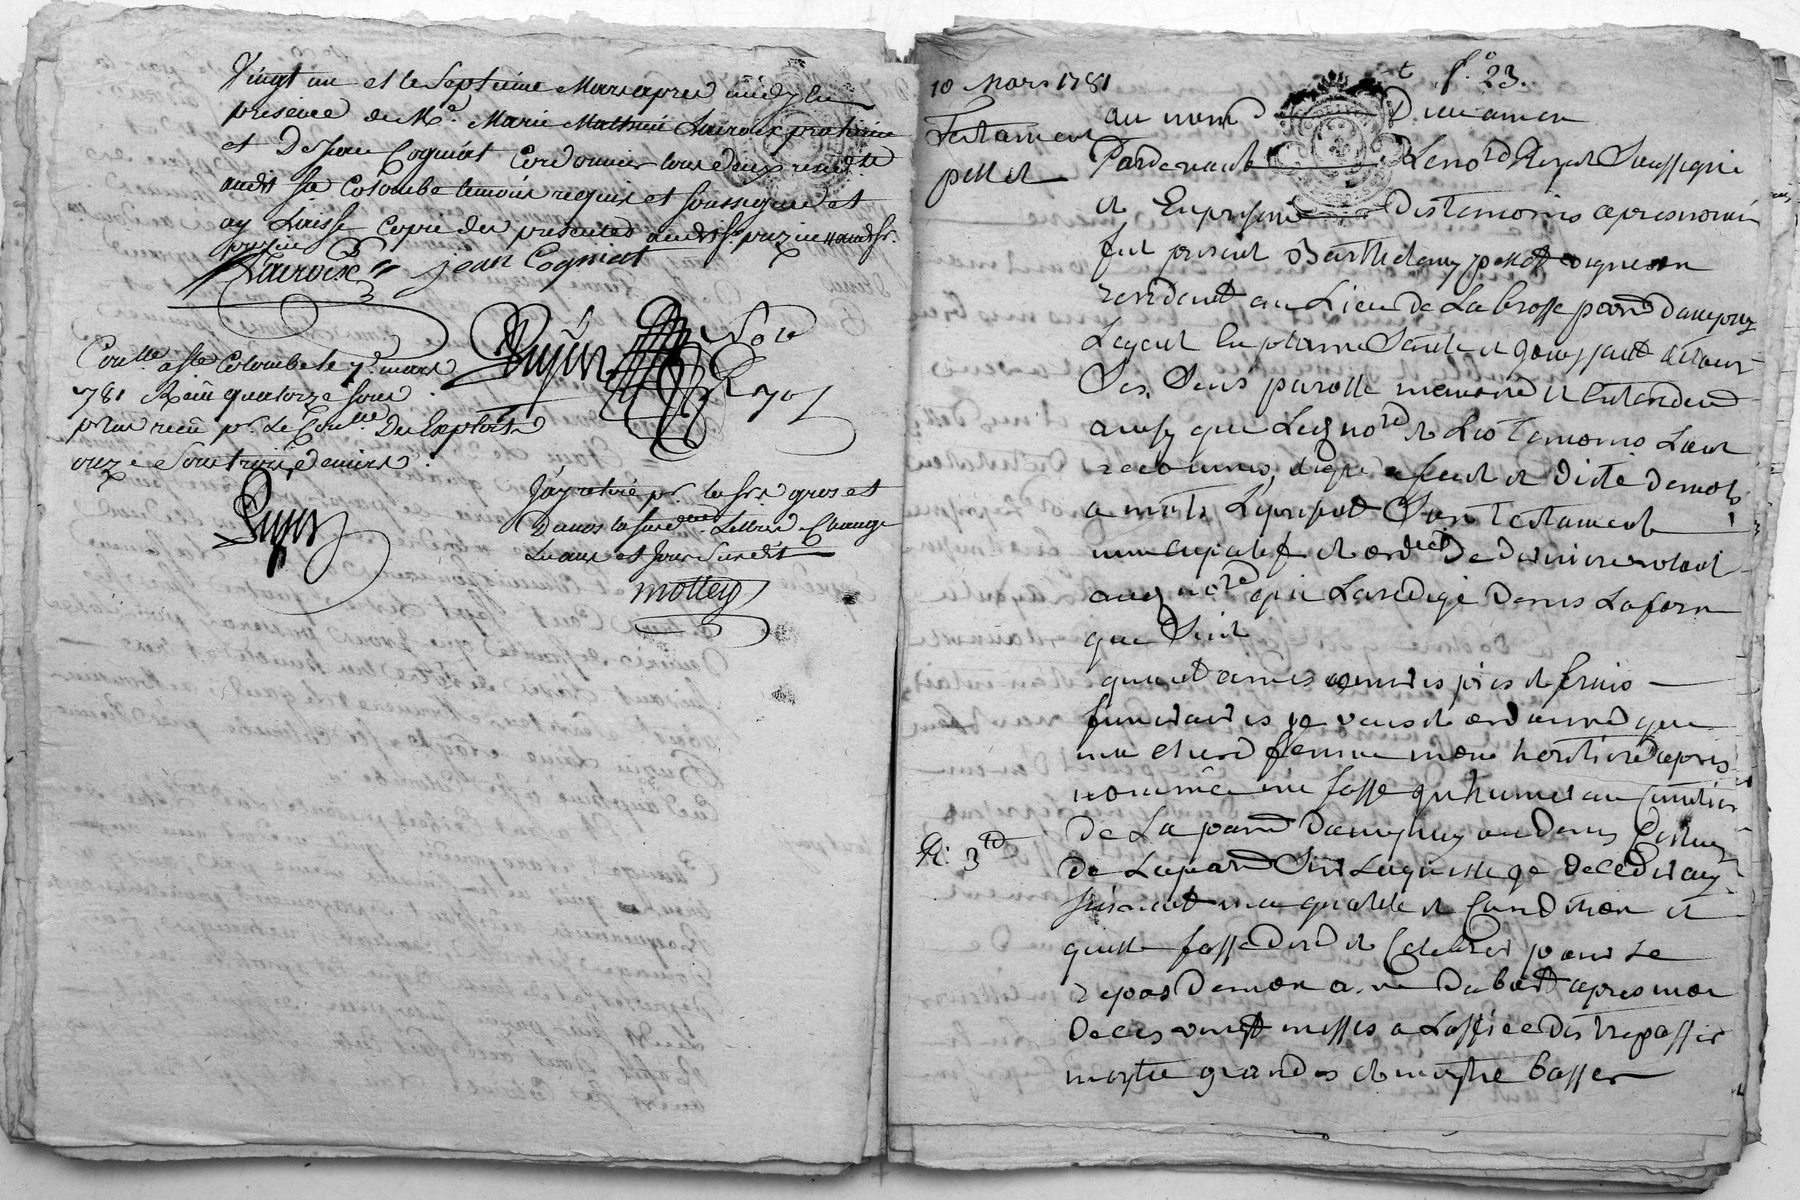 Vingt un et le Septième Mars apres midy En
présence de Mc. Marie Mathieu Lacroix praticien
et De Jean Cogniat Cordonnier tous deux resid.tt
audit Ste Colombe temoins requis et soussignés et
ay Laissé Copie des presentes audit Sr. puzin
Lacroix jean Cogniat
Coullé a Ste Colombe le 7e. mars
781 Reçu quatorze sous
plus reçu pr. Le Coullé Des Exploits
onze Sous trois deniers
Nore
Royal
J'ay retiré pr. les Srs gros et
Danos la susd. Lettre de Change
Les an et jour Susdit
mottey
10 Mars 1781
Testament
pellet
fo. 23.
au nom De Dieu amen
Pardevant Le nore Royal Soussigné
et En presence Des temoins apres nommés
fut present Barthelemy pellet vigneron
residant au Lieu De La brosse paroisse Dampuis
Lequel En pleine Santé et Jouissant de tous
Ses Sens parolle memoire et Entendement
ainsy que Led nore et Les temoins L'ont
reconnu, a fait et Dicté De mots
a mots Son testament
nuncupatif et ordce De Derniere volonté
aud nore qui L'a redigé Dans La forme
que Suit
quant a mes œuvres pies et frais
funeraires je veux et ordonne que
ma chere femme mon heritiere apres
nommée me fasse inhumer au Cimetiere
De La paroisse Dampuis ou Dans
De La paroisse Sur Laquelle je Decederay
Suivant ma qualité et Condition et
quelle fasse Dire et Celebrer pour Le
repos De mon ame Dabord apres mon
Deces vingt messes a L'office Des trepasses
moytié grandes et moytié basses
R. 3 td